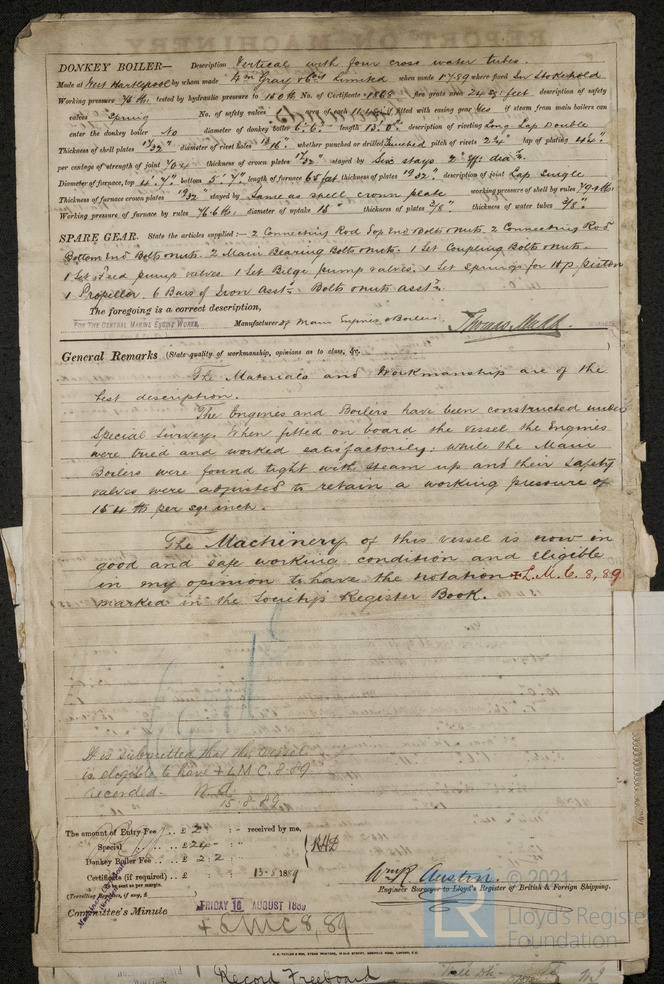 DONKEY BOILER— Description Vertical with four cross water tubes.
Made at West Hartlepool by whom made Wm Gray & Co Limited when made 1889 where fixed In Stokehold
Working pressure 76 lb. tested by hydraulic pressure to 150 lb No. of Certificate fire grate area 24 sq: feet description of safety
valves Spring No. of safety valves area of each if fitted with easing gear Yes if steam from main boilers can
enter the donkey boiler No diameter of donkey boiler 6'. 6" length 13'. 0" description of riveting Long. Lap Double
Thickness of shell plates 17/32" diameter of rivet holes 13/16" whether punched or drilled Punched pitch of rivets 2 3/4" lap of plating 4 1/4"
per centage of strength of joint 70.4 thickness of crown plates 17/32" stayed by Six stays 2" eff: dia.
Diameter of furnace, top 4'. 7" bottom 5'. 7" length of furnace thickness of plates 19/32" description of joint Lap Single
Thickness of furnace crown plates 19/32" stayed by Same as shell crown plate working pressure of shell by rules 79.4 lbs.
Working pressure of furnace by rules 76.6 lbs. diameter of uptake 15" thickness of plates 3/8" thickness of water tubes 3/8"
SPARE GEAR. State the articles supplied:— 2 Connecting Rod Top End Bolts & Nuts. 2 Connecting Rod
Bottom End Bolts & Nuts. 2 Main Bearing Bolts & Nuts. 1 Set Coupling Bolts & Nuts.
1 Set Feed pump valves. 1 Set Bilge pump valves. 1 Set Springs for H.p. piston
1 Propellor. 6 Bars of Iron Asstd. Bolts & Nuts asstd.
The foregoing is a correct description,
FOR THE CENTRAL MARINE ENGINE WORKS, Manufacturer of Main Engines & Boilers. Thomas Mudd.
General Remarks (State quality of workmanship, opinions as to class, &c.
The Materials and Workmanship are of the
best description.
The Engines and Boilers have been constructed under
Special Survey. When fitted on board the vessel the Engines
were tried and worked satisfactorily; while the Main
Boilers were found tight with steam up and their Safety
valves were adjusted to retain a working pressure of
154 lb per sq inch.
The Machinery of this vessel is now in
good and safe working condition and eligible
in my opinion to have the notation + L.M.C. 8,89
marked in the Society's Register Book.
It is submitted that this vessel
is eligible to have + LMC. 8.89
recorded.
15.8.89
The amount of Entry Fee .. £ 2 : : received by me,
Special .. .. £ 24 : :
Donkey Boiler Fee .. .. £ 2 : 2 :
Certificate (if required) .. £ : : 13.8.1889
(Travelling Expenses, if any, £ )
Wm R. Austin.
Engineer Surveyor to Lloyd's Register of British & Foreign Shipping.
Committee's Minute FRIDAY 16 AUGUST 1889
+ LMC 8,89
© 2021
LR
Lloyd's Register
Foundation
Record Freeboard